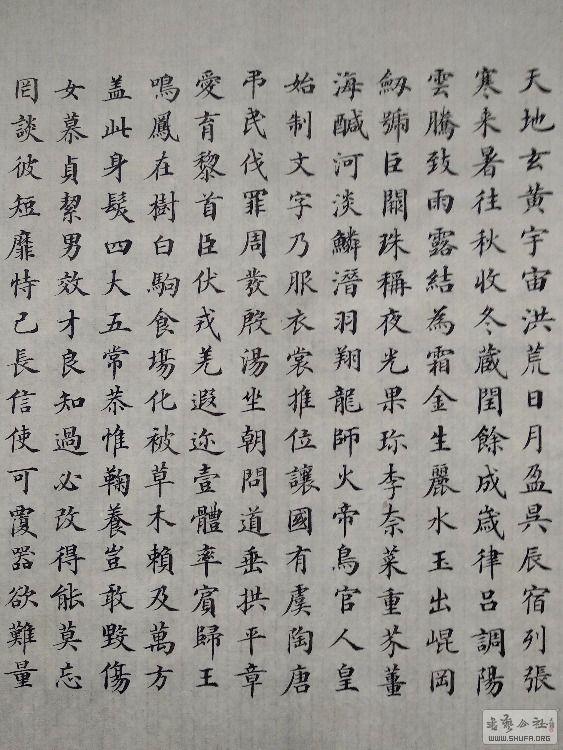 天地玄黃宇宙洪荒日月盈昃辰宿列張
寒来暑往秋收冬蔵閏餘成歳律吕調陽
雲騰致雨露結為霜金生麗水玉出崐岡
劔號巨闕珠稱夜光果珎李柰菜重芥薑
海醎河淡鱗潛羽翔龍師火帝鳥官人皇
始制文字乃服衣裳推位讓國有虞陶唐
弔民伐罪周發殷湯坐朝問道垂拱平章
愛育黎首臣伏戎羌遐迩壹體率賓歸王
鳴鳳在樹白駒食場化被草木賴及萬方
盖此身髮四大五常恭惟鞠養豈敢毀傷
女慕貞絜男效才良知過必改得能莫忘
罔談彼短靡恃己長信使可覆器欲難量
書藝公社
WWW.SHUFA.ORG